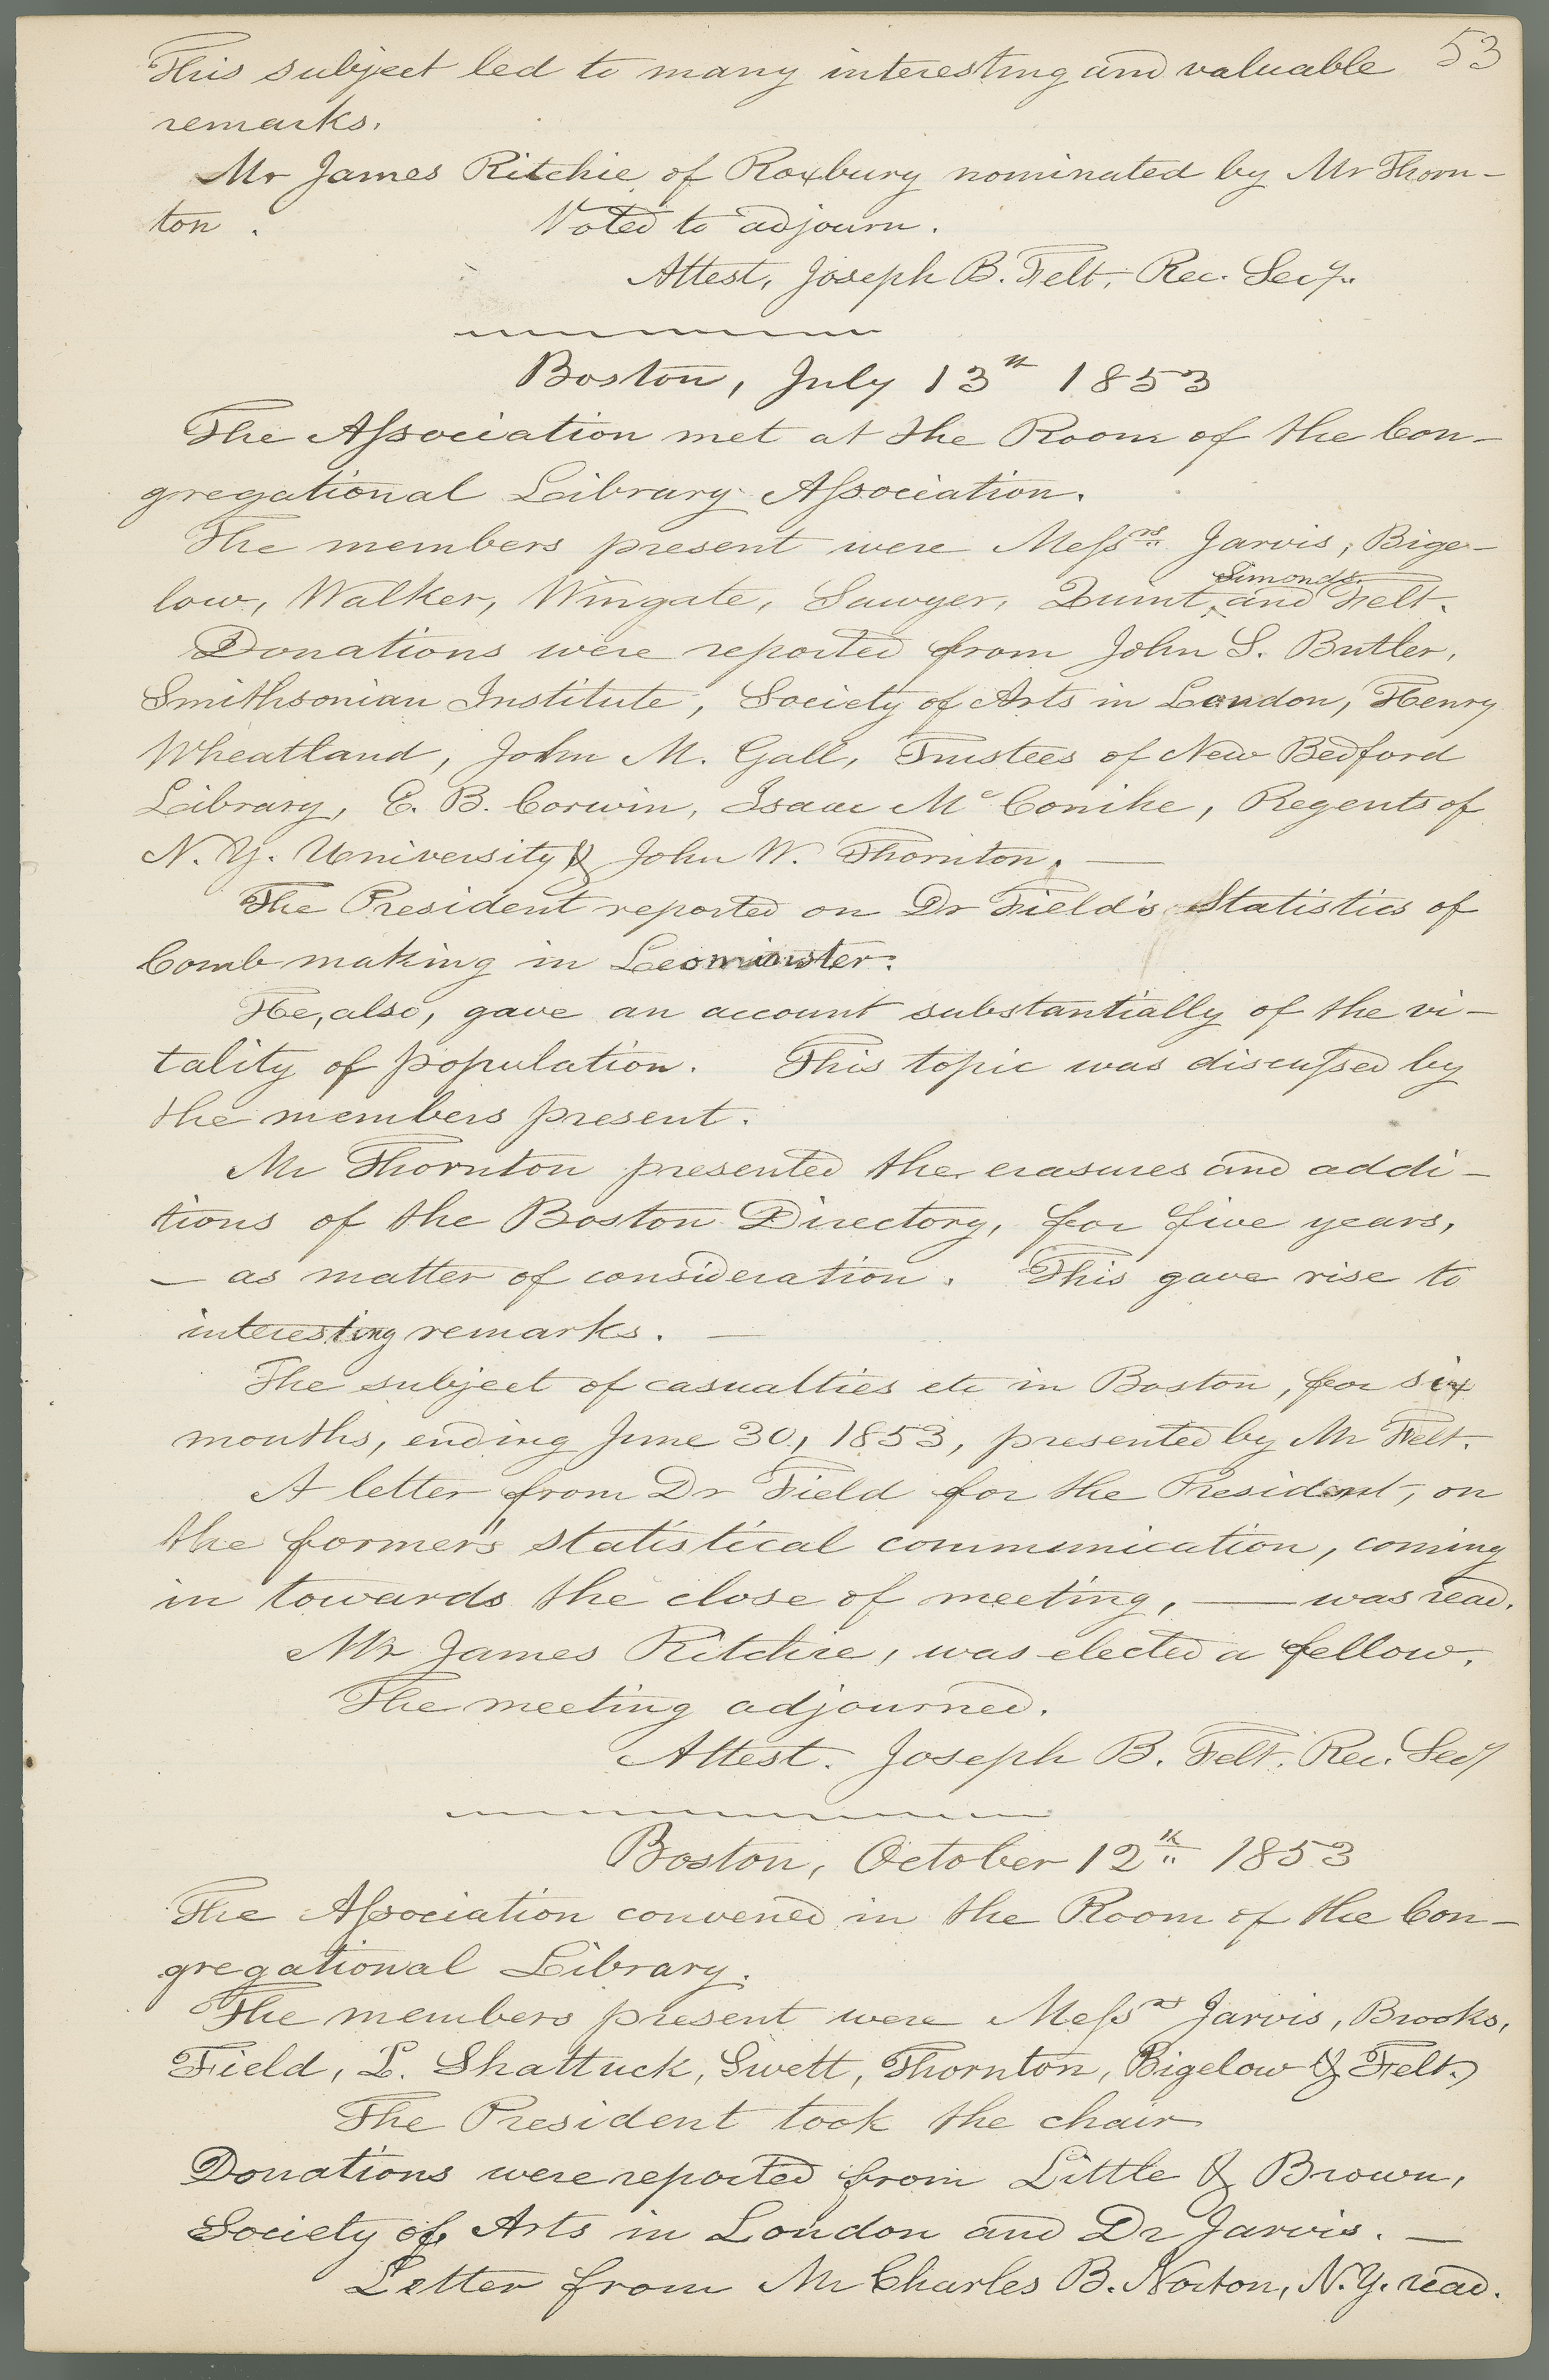 53
This subject led to many interesting and valuable
remarks.
Mr James Ritchie of Roxbury nominated by Mr Thorn-
ton . Voted to adjourn.
Attest, Joseph B. Felt, Rec. Secy.
Boston, July 13th 1853
The Association met at the Room of the Con-
gregational Library Association.
The members present were Messrs Jarvis, Bige-
low, Walker, Wingate, Sawyer, Quint, Simonds and Felt.
Donations were reported from John S. Butler,
Smithsonian Institute, Society of Arts in London, Henry
Wheatland, John M. Gall, Trustees of New Bedford
Library, E. B. Corwin, Isaac McConihe, Regents of
N. Y. University & John W. Thornton. —
The President reported on Dr Field's Statistics of
Comb making in Leominster.
He, also, gave an account substantially of the vi-
tality of population. This topic was discussed by
the members present.
Mr Thornton presented the erasures and addi-
tions of the Boston Directory, for five years,
— as matter of consideration. This gave rise to
interesting remarks. —
The subject of casualties etc in Boston, for six
months, ending June 30, 1853, presented by Mr Felt.
A letter from Dr Field for the President, on
the former's statistical communication, coming
in towards the close of meeting, — was read.
Mr James Ritchie, was elected a fellow.
The meeting adjourned.
Attest. Joseph B. Felt. Rec. Secy
Boston, October 12th 1853
The Association convened in the Room of the Con-
gregational Library.
The members present were Messrs Jarvis, Brooks,
Field, L. Shattuck, Swett, Thornton, Bigelow & Felt.
The President took the chair
Donations were reported from Little & Brown,
Society of Arts in London and Dr Jarvis. —
Letter from Mr Charles B. Norton, N.Y. read.